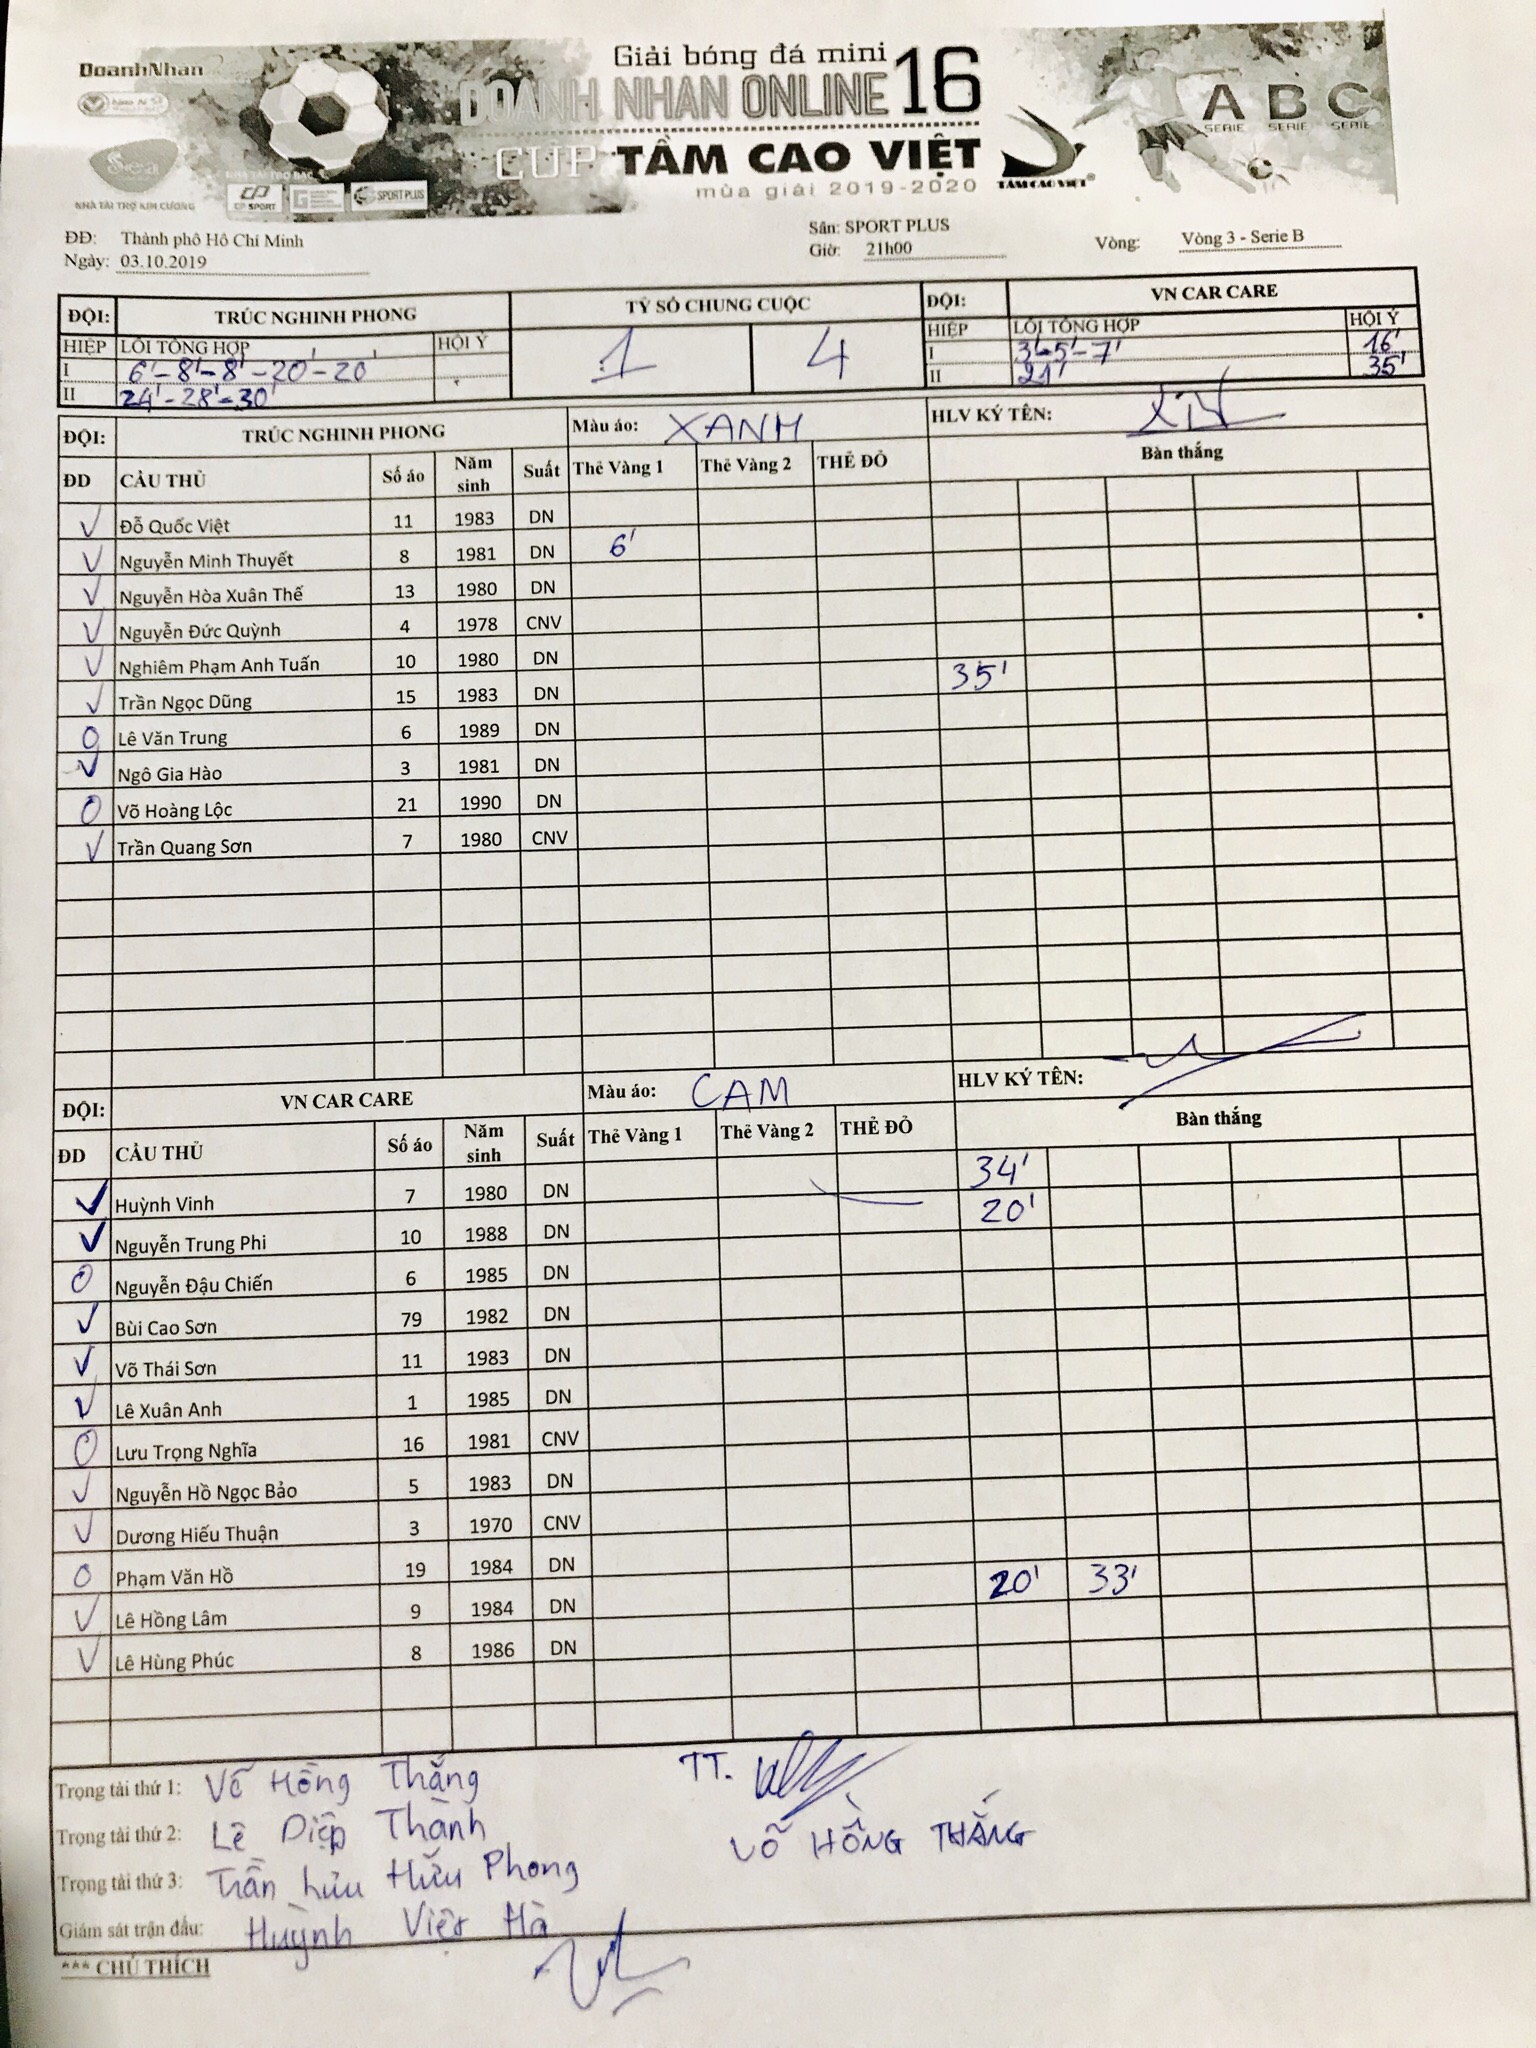 DoanhNhan
Giải bóng đá mini
DOANH NHAN ONLINE 16
CUP TẦM CAO VIỆT
mùa giải 2019-2020
TẦM CAO VIỆT
A B C
SERIE SERIE SERIE
NHÀ TÀI TRỢ KIM CƯƠNG
NHÀ TÀI TRỢ BẠC
CP SPORT
SPORT PLUS
ĐĐ: Thành phố Hồ Chí Minh Sân: SPORT PLUS
Ngày: 03.10.2019 Giờ: 21h00 Vòng: Vòng 3 - Serie B
ĐỘI: TRÚC NGHINH PHONG TỶ SỐ CHUNG CUỘC ĐỘI: VN CAR CARE
HIỆP LỖI TỔNG HỢP HỘI Ý 1 4 HIỆP LỖI TỔNG HỢP HỘI Ý
I 6'-8'-8'-20'-20' I 3'-5'-7' 16'
II 24'-28'-30' II 21' 35'
ĐỘI: TRÚC NGHINH PHONG Màu áo: XANH HLV KÝ TÊN:
ĐD CẦU THỦ Số áo Năm sinh Suất Thẻ Vàng 1 Thẻ Vàng 2 THẺ ĐỎ Bàn thắng
√ Đỗ Quốc Việt 11 1983 DN
√ Nguyễn Minh Thuyết 8 1981 DN 6'
√ Nguyễn Hòa Xuân Thế 13 1980 DN
√ Nguyễn Đức Quỳnh 4 1978 CNV
√ Nghiêm Phạm Anh Tuấn 10 1980 DN 35'
√ Trần Ngọc Dũng 15 1983 DN
O Lê Văn Trung 6 1989 DN
√ Ngô Gia Hào 3 1981 DN
O Võ Hoàng Lộc 21 1990 DN
√ Trần Quang Sơn 7 1980 CNV
ĐỘI: VN CAR CARE Màu áo: CAM HLV KÝ TÊN:
ĐD CẦU THỦ Số áo Năm sinh Suất Thẻ Vàng 1 Thẻ Vàng 2 THẺ ĐỎ Bàn thắng
√ Huỳnh Vinh 7 1980 DN 34'
√ Nguyễn Trung Phi 10 1988 DN 20'
O Nguyễn Đậu Chiến 6 1985 DN
√ Bùi Cao Sơn 79 1982 DN
√ Võ Thái Sơn 11 1983 DN
√ Lê Xuân Anh 1 1985 DN
O Lưu Trọng Nghĩa 16 1981 CNV
√ Nguyễn Hồ Ngọc Bảo 5 1983 DN
√ Dương Hiếu Thuận 3 1970 CNV
O Phạm Văn Hồ 19 1984 DN
√ Lê Hồng Lâm 9 1984 DN 20' 33'
√ Lê Hùng Phúc 8 1986 DN
Trọng tài thứ 1: Võ Hồng Thắng TT.
Trọng tài thứ 2: Lê Diệp Thành VÕ HỒNG THẮNG
Trọng tài thứ 3: Trần hữu Hữu Phong
Giám sát trận đấu: Huỳnh Việt Hà
*** CHÚ THÍCH